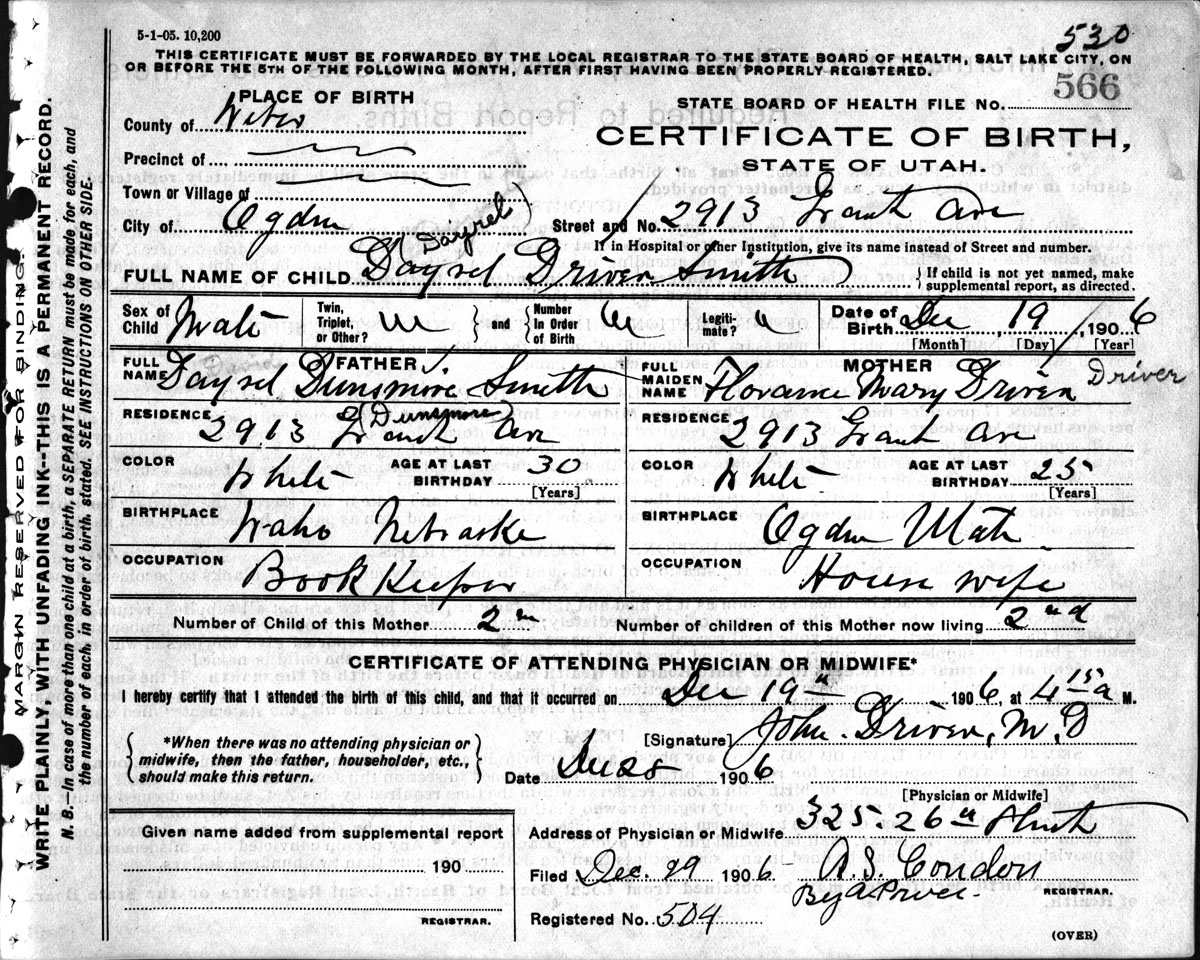 5-1-05. 10,200
530
THIS CERTIFICATE MUST BE FORWARDED BY THE LOCAL REGISTRAR TO THE STATE BOARD OF HEALTH, SALT LAKE CITY, ON
OR BEFORE THE 5TH OF THE FOLLOWING MONTH, AFTER FIRST HAVING BEEN PROPERLY REGISTERED.
PLACE OF BIRTH
STATE BOARD OF HEALTH FILE No. 566
County of Weber
CERTIFICATE OF BIRTH,
Precinct of
STATE OF UTAH.
Town or Village of
City of Ogden
Street and No. 2913 Grant Ave
If in Hospital or other Institution, give its name instead of Street and number.
Dayrel
FULL NAME OF CHILD Dayrel Driver Smith
If child is not yet named, make supplemental report, as directed.
Sex of Child Male
Twin, Triplet, or Other?
and
Number in Order of Birth
Legiti- mate?
Date of Birth Dec 19 1906
[Month] [Day] [Year]
FATHER
FULL NAME Dayrel Dunsmore Smith
MOTHER
FULL MAIDEN NAME Florance Mary Driver
Driver
Dunsmore
RESIDENCE 2913 Grant Ave
RESIDENCE 2913 Grant Ave
COLOR White
AGE AT LAST BIRTHDAY 30
[Years]
COLOR White
AGE AT LAST BIRTHDAY 25
[Years]
BIRTHPLACE Waho Nebraske
BIRTHPLACE Ogden Utah
OCCUPATION Book Keeper
OCCUPATION House wife
Number of Child of this Mother 2
Number of children of this Mother now living 2nd
CERTIFICATE OF ATTENDING PHYSICIAN OR MIDWIFE*
I hereby certify that I attended the birth of this child, and that it occurred on Dec 19 1906, at 4 15 a M.
*When there was no attending physician or
midwife, then the father, householder, etc.,
should make this return.
[Signature] John Driver, M D
Date 1906
[Physician or Midwife]
Given name added from supplemental report
190
REGISTRAR.
Address of Physician or Midwife 325. 26 Street
Filed Dec. 29 1906 A. S. Condon
REGISTRAR.
Registered No. 504
(OVER)
MARGIN RESERVED FOR BINDING.
WRITE PLAINLY, WITH UNFADING INK--THIS IS A PERMANENT RECORD.
N. B.—In case of more than one child at a birth, a SEPARATE RETURN must be made for each, and
the number of each, in order of birth, stated. SEE INSTRUCTIONS ON OTHER SIDE.